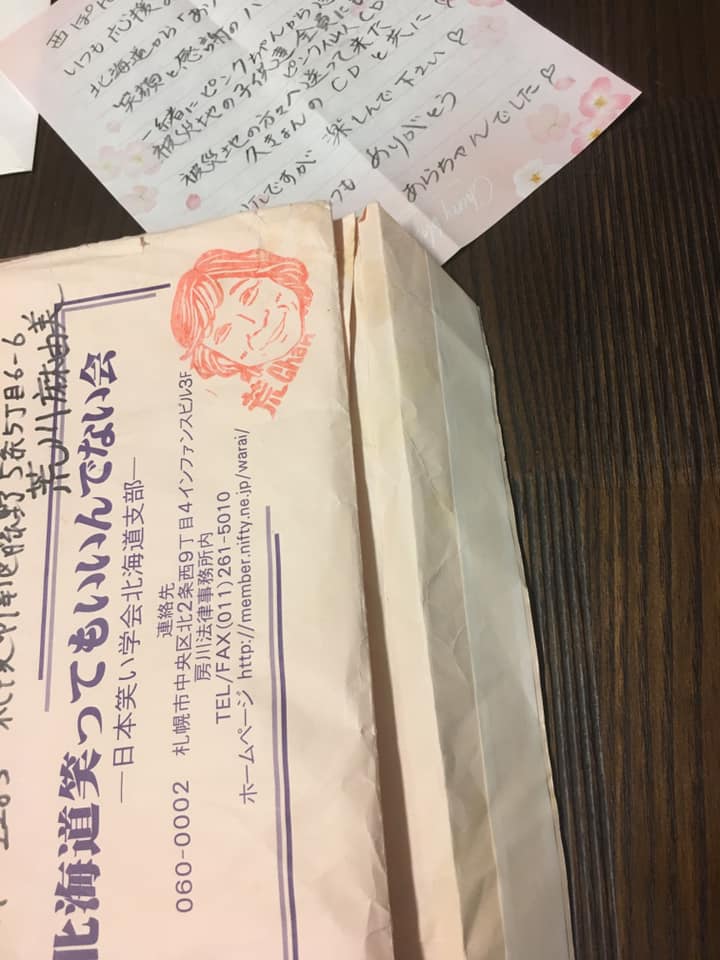 いつも応援
北海道から「あり
笑顔と感謝のハ
一緒にピンクちゃんから
被災地の子供達全員に
被災地の方々へ送って来た
久きょんのCDと共に♡
ですが 楽しんで下さい♡
つも ありがとう
あらちゃんでした♡
荒chan
5条5丁目6-6
荒川麻由美
北海道笑ってもいいんでない会
―日本笑い学会北海道支部―
連絡先
060-0002 札幌市中央区北2条西9丁目4インファンスビル3F
房川法律事務所内
TEL/FAX(011)261-5010
ホームページ http://member.nifty.ne.jp/warai/